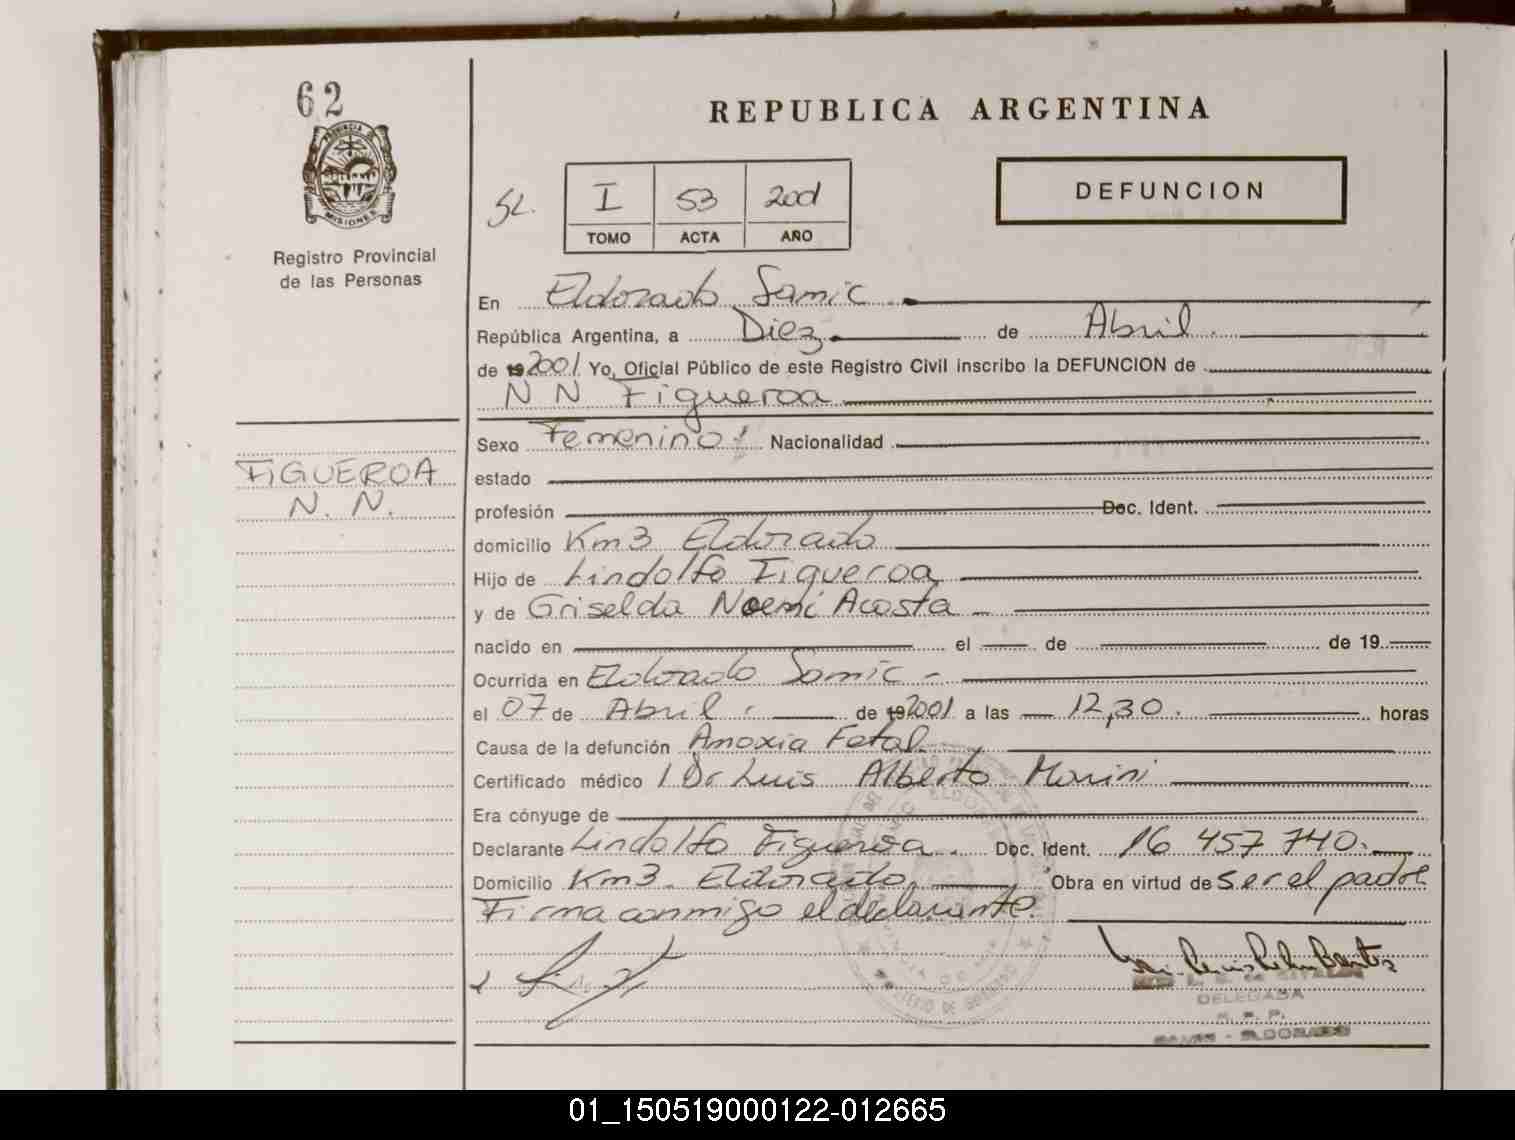 62
PROVINCIA DE
MISIONES
Registro Provincial
de las Personas
REPUBLICA ARGENTINA
SL. I 53 2001
TOMO ACTA AÑO
DEFUNCION
En Eldorado Samic
República Argentina, a Diez de Abril
de 19 2001 Yo, Oficial Público de este Registro Civil inscribo la DEFUNCION de
N N Figueroa
Sexo Femenino Nacionalidad
FIGUEROA
N. N.
estado
profesión Doc. Ident.
domicilio Km3 Eldorado
Hijo de Lindolfo Figueroa
y de Griselda Noemí Acosta
nacido en el de de 19
Ocurrida en Eldorado Samic
el 07 de Abril de 19 2001 a las 12,30. horas
Causa de la defunción Anoxia Fetal
Certificado médico Dr Luis Alberto Marini
Era cónyuge de
Declarante Lindolfo Figueroa. Doc. Ident. 16 457 740.
Domicilio Km3. Eldorado. Obra en virtud de ser el padre
Firma conmigo el declarante.
DELEGADA
R. P. P.
SAMIC - ELDORADO
01_150519000122-012665